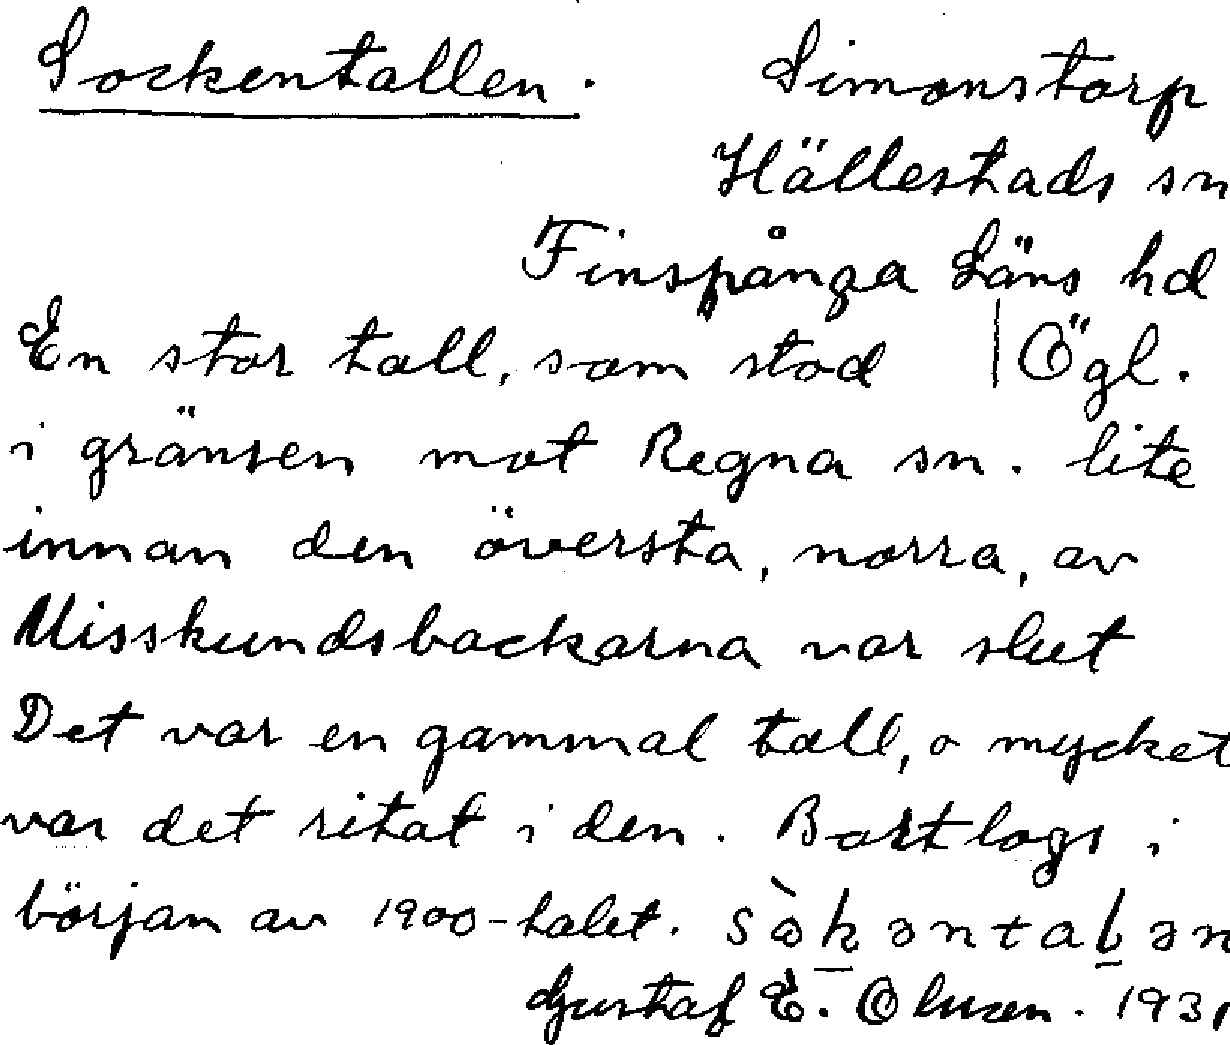 Sockentallen. Simonstorp
Hällestads sn
Finspånga Läns hd
En stor tall, som stod | Ögl.
i gränsen mot Regna sn. lite
innan den översta, norra, av
Misskundsbackarna var slut
Det var en gammal tall, o mycket
var det ritat i den. Borttogs i
början av 1900-talet. sòkəntaḷən
Gustaf E. Olsson. 1931